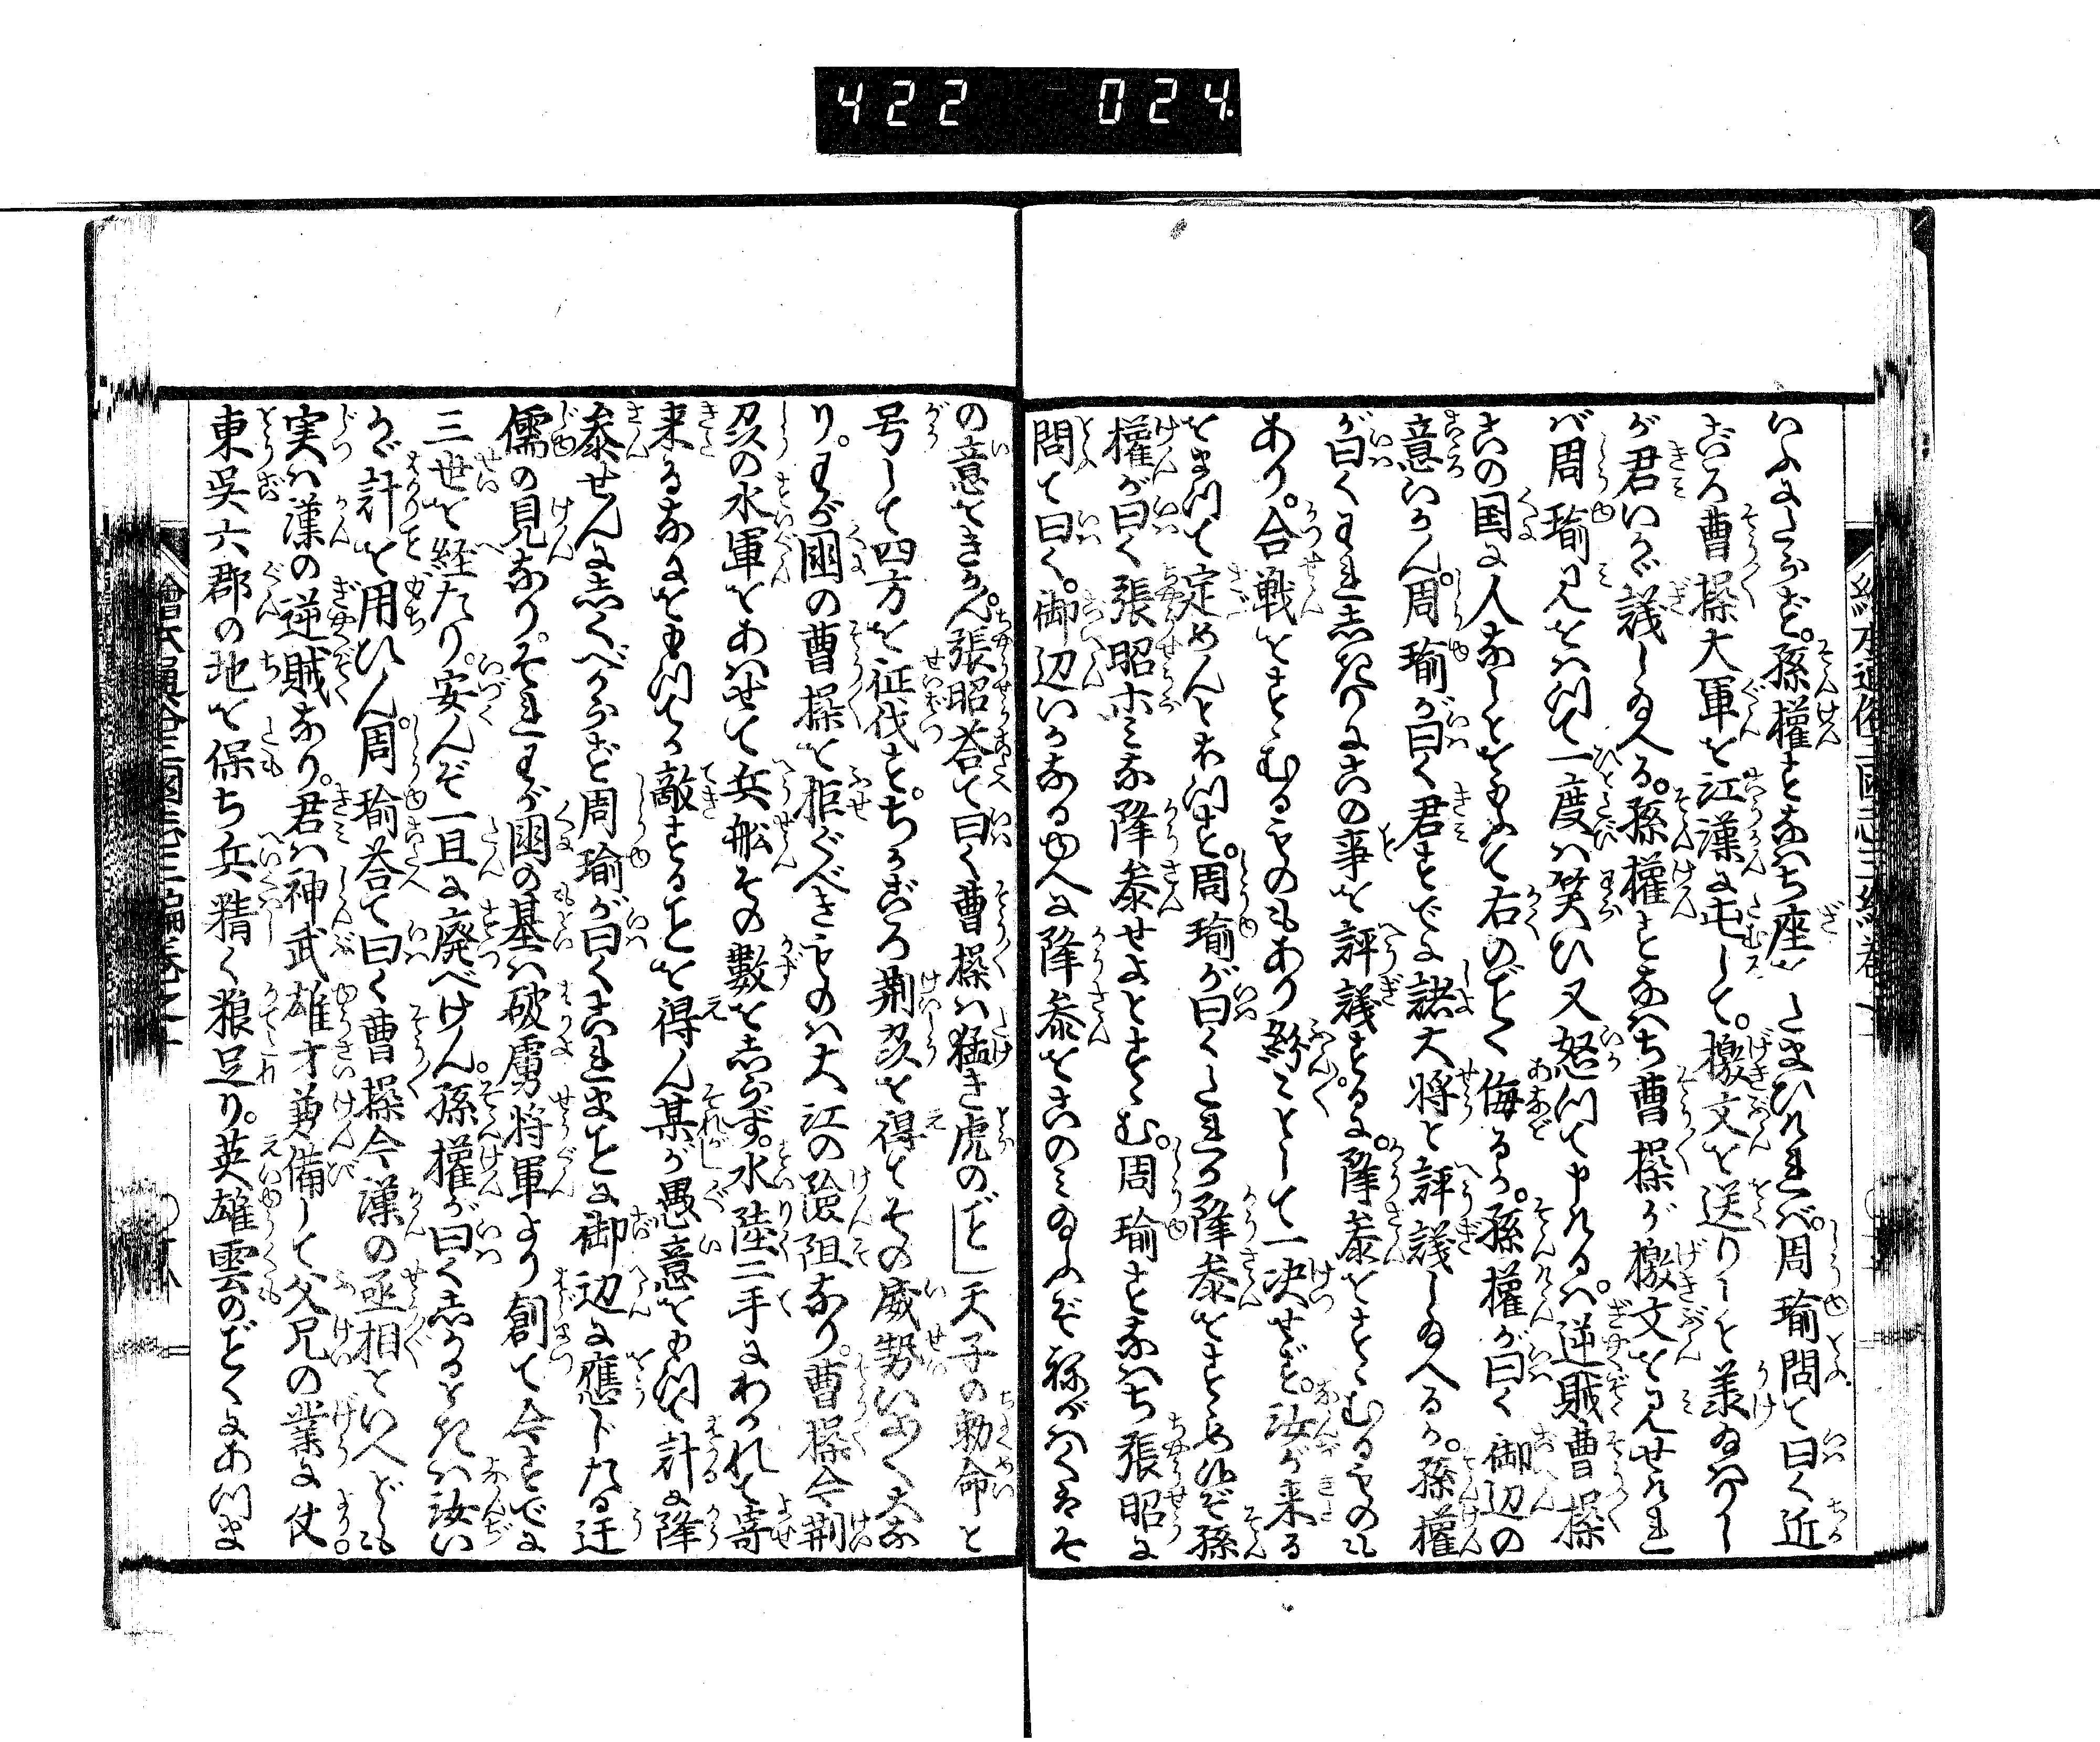 422 024
いふにたらず。孫權すなはち座につきたまひければ。周瑜問て曰く近
ごろ曹操大軍を江漢に屯して。檄文を送りしを羕給ひし
が君いかゞ議し給へる。孫權すなはち曹操が檄文を見せければ
ば周瑜見をはつて一度は笑ひ又怒つて申けるは。逆賊曹操
この国に人なしとをもひて右のごとく侮るか。孫權が曰く御辺の
意いかん。周瑜が曰く君すでに諸大将と評議し給へるか。孫權
が曰くわれしきりにこの事を評議するに。降參をすゝむるものル
あり。合戦をすゝむるものもあり紛々として一决せず。汝が来る
をまつて定めんとおもふ。周瑜が曰くたれか降參をすゝめ候ぞ孫
權が曰く張昭ホミな降參せよとすゝむ。周瑜すなはち張昭に
問て曰く。御辺いかなるゆへに降參をこのみ給ふぞ称がはくはそ
の意をきかん。張昭荅て曰く曹操は猛き虎のごとし天子の勅命と
号して四方を征伐す。ちかごろ荆州を得てその威勢いよ〳〵大な
り。わが國の曹操を拒ぐべきものは大江の險阻なり。曹操今荆
州の水軍をあはせて兵舩その數をしらず。水陸二手にわかれて寄
来るなにをもつてか敵することを得ん某が愚意をもつて計に降
參せんにしくべからず周瑜が曰くこれまことに御辺に應じたる迂
儒の見なり。それわが國の基は破虜将軍より創て今すでに
三世を経たり。安んぞ一旦に廃べけん。孫權が曰くしかるときは汝い
かゞ計を用ひん。周瑜荅て曰く曹操今漢の丞相といへども
実は漢の逆賊なり。君は神武雄才兼備して父兄の業に仗
東吳六郡の地を保ち兵精く粮足り。英雄雲のごとくにあつま